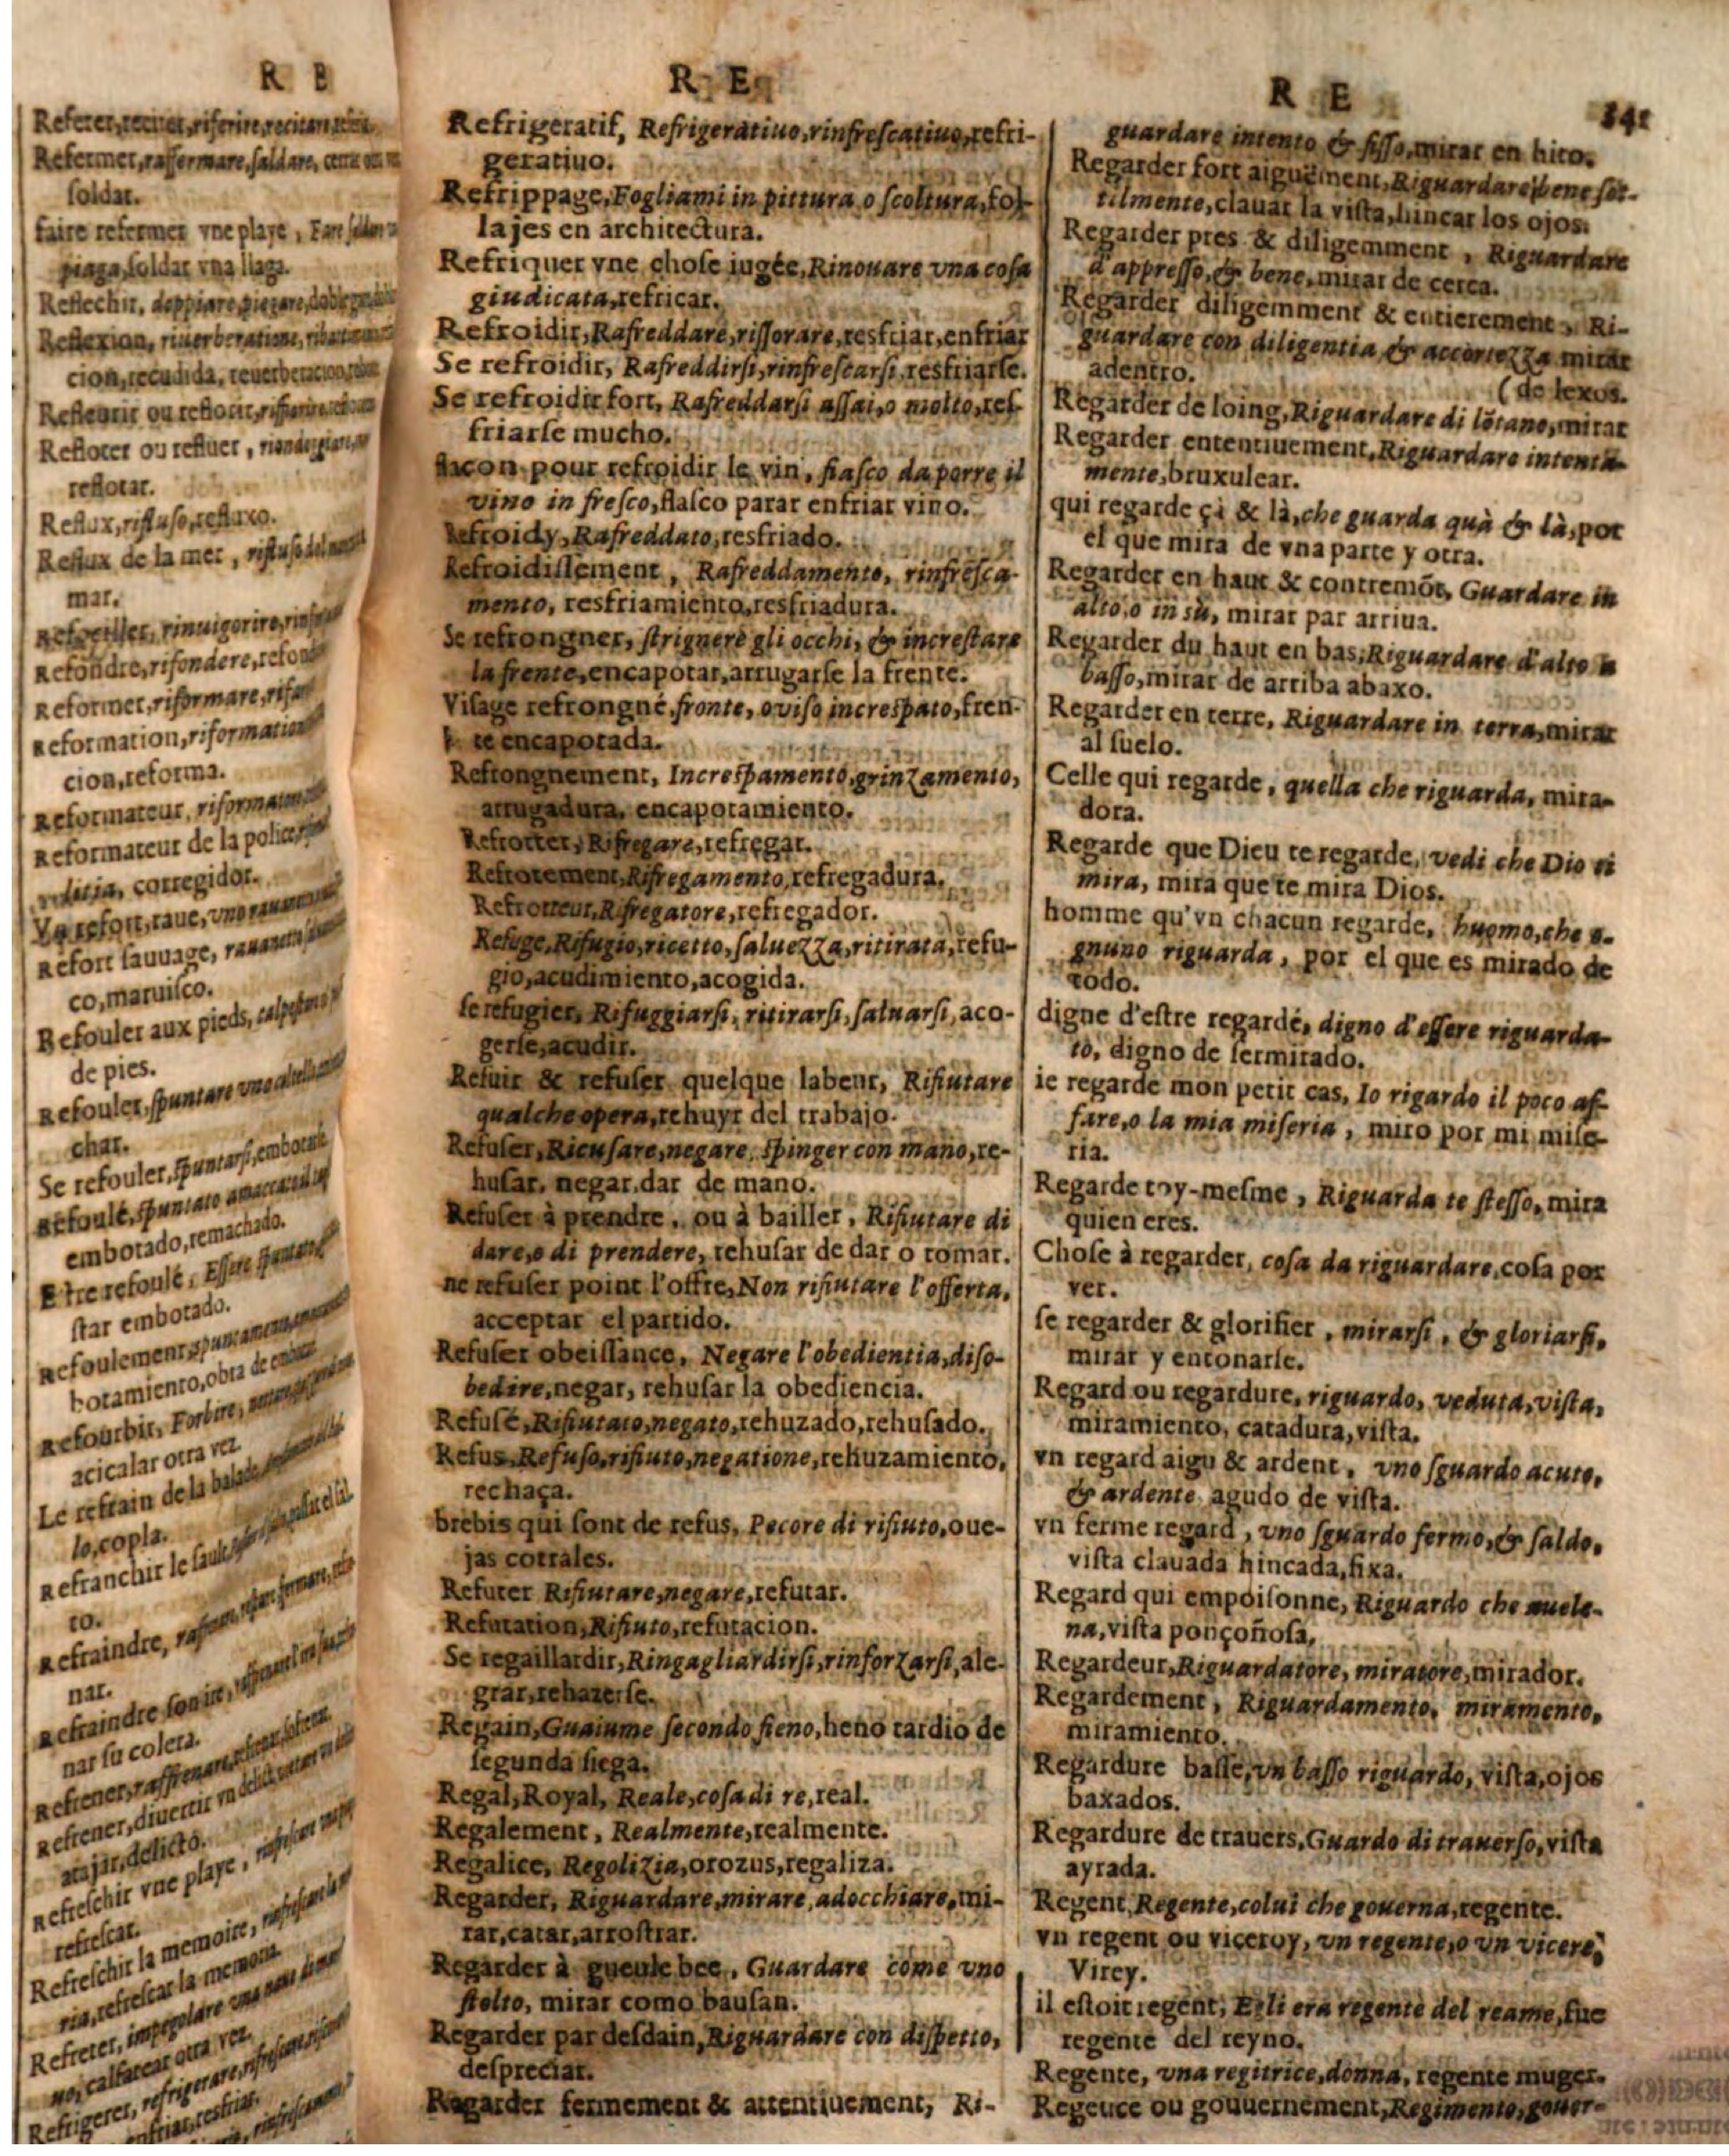 R E
Referer,
Refermer, raffermare, ſaldare,
ſoldar.
faire refermer vne playe, Fare
piaga, ſoldar vna llaga.
Reflechir,
Reflexion, riuerberatione,
cion, recudida, reuerberacion,
Refleurir ou reflorir,
Refloter ou refluer,
reflotar.
Reflux, rifluſo, refluxo.
Reflux de la mer, rifluſo del
mar.
rinuigorire,
Refondre, rifondere,
Reformer, riformare,
Reformation, riformatione
cion, reforma.
Reformateur, riformatore
Reformateur de la police,
corregidor.
Vn refort, raue, vno
Refort ſauuage,
co, maruiſco.
Refouler aux pieds,
de pies.
Refouler, ſpuntare vno
char.
Se refouler, ſpuntarſi,
Refoulé, ſpuntato
embotado, remachado.
Eſtre refoulé, Eſſere ſpuntato
ſtar embotado.
Refoulement,
botamiento, obra de
Refourbir, Forbire,
acicalar otra vez.
Le refrain de la balade
lo, copla.
Refranchir le ſault,
to.
Refraindre,
nar.
Refraindre ſon ire,
nar ſu colera.
Refrener, raffrenare,
Refrener, diuertir vn delict,
atajar, delicto.
Refreſchir vne playe,
refreſcar.
Refreſchir la memoire,
ria, refreſcar la memoria.
Refreter, impegolare vna naue
uo, calfatear otra vez.
Refrigerer, refrigerare,
enfriar, resfriar.
R E
Refrigeratif, Refrigeratiuo, rinfreſcatiuo, refri-
geratiuo.
Refrippage, Fogliami in pittura o ſcoltura, fol-
lajes en architectura.
Refriquer vne choſe iugée, Rinouare vna coſa
giudicata, refricar.
Refroidir, Rafreddare, riſſorare, resfriar, enfriar
Se refroidir, Rafreddirſi, rinfreſcarſi, resfriarſe.
Se refroidir fort, Rafreddarſi aſſai, o molto, reſ-
friarſe mucho.
flacon pour refroidir le vin, fiaſco da porre il
vino in freſco, flaſco parar enfriar vino.
Refroidy, Rafreddato, resfriado.
Refroidiſſement, Rafreddamento, rinfreſca-
mento, resfriamiento, resfriadura.
Se refrongner, ſtrignere gli occhi, & increſtare
la frente, encapotar, arrugarſe la frente.
Viſage refrongné, fronte, o viſo increſpato, fren-
te encapotada.
Refrongnement, Increſpamento, grinzamento,
arrugadura, encapotamiento.
Refrotter, Rifregare, refregar.
Refrotement, Rifregamento, refregadura.
Refrotteur, Rifregatore, refregador.
Refuge, Rifugio, ricetto, ſaluezza, ritirata, refu-
gio, acudimiento, acogida.
ſe refugier, Rifuggiarſi, ritirarſi, ſaluarſi, aco-
gerſe, acudir.
Refuir & refuſer quelque labeur, Rifiutare
qualche opera, rehuyr del trabajo.
Refuſer, Ricuſare, negare, ſpinger con mano, re-
huſar, negar, dar de mano.
Refuſer à prendre, ou à bailler, Rifiutare di
dare, o di prendere, rehuſar de dar o tomar.
ne refuſer point l'offre, Non rifiutare l'offerta,
acceptar el partido.
Refuſer obeiſſance, Negare l'obedientia, diſo-
bedire, negar, rehuſar la obediencia.
Refuſé, Rifiutato, negato, rehuzado, rehuſado.
Refus, Refuſo, rifiuto, negatione, rehuzamiento,
rechaça.
brebis qui ſont de refus, Pecore di rifiuto, oue-
jas corrales.
Refuter Rifiutare, negare, refutar.
Refutation, Rifiuto, refutacion.
Se regaillardir, Ringagliardirſi, rinforzarſi, ale-
grar, rehazerſe.
Regain, Guaiume ſecondo fieno, heno tardio de
ſegunda ſiega.
Regal, Royal, Reale, coſa di re, real.
Regalement, Realmente, realmente.
Regalice, Regolizia, orozus, regaliza.
Regarder, Riguardare, mirare, adocchiare, mi-
rar, catar, arroſtrar.
Regarder à gueule bee, Guardare come vno
ſtolto, mirar como bauſan.
Regarder par deſdain, Riguardare con diſpetto,
deſpreciar.
Regarder fermement & attentiuement, Ri-
R E
241
guardare intento & fiſſo, mirar en hito.
Regarder fort aiguëment, Riguardare bene ſot-
tilmente, clauar la viſta, hincar los ojos.
Regarder pres & diligemment, Riguardare
d'appreſſo, & bene, mirar de cerca.
Regarder diligemment & entierement, Ri-
guardare con diligentia & accortezza mirar
adentro.
(de lexos.
Regarder de loing, Riguardare di lõtano, mirar
Regarder ententiuement, Riguardare intenta-
mente, bruxulear.
qui regarde çà & là, che guarda quà & là, por
el que mira de vna parte y otra.
Regarder en haut & contremõt, Guardare in
alto, o in sù, mirar par arriua.
Regarder du haut en bas, Riguardare d'alto a
baſſo, mirar de arriba abaxo.
Regarder en terre, Riguardare in terra, mirar
al ſuelo.
Celle qui regarde, quella che riguarda, mira-
dora.
Regarde que Dieu te regarde, vedi che Dio ti
mira, mira que te mira Dios.
homme qu'vn chacun regarde, huomo, che o-
gnuno riguarda, por el que es mirado de
todo.
digne d'eſtre regardé, digno d'eſſere riguarda-
to, digno de ſermirado.
ie regarde mon petit cas, Io rigardo il poco af-
fare, o la mia miſeria, miro por mi miſe-
ria.
Regarde toy-meſme, Riguarda te ſteſſo, mira
quien eres.
Choſe à regarder, coſa da riguardare, coſa por
ver.
ſe regarder & glorifier, mirarſi, & gloriarſi,
mirar y entonarſe.
Regard ou regardure, riguardo, veduta, viſta,
miramiento, catadura, viſta.
vn regard aigu & ardent, vno ſguardo acuto,
& ardente agudo de viſta.
vn ferme regard, vno ſguardo fermo, & ſaldo,
viſta clauada hincada, fixa.
Regard qui empoiſonne, Riguardo che auele-
na, viſta ponçoñoſa,
Regardeur, Riguardatore, miratore, mirador.
Regardement, Riguardamento, miramento,
miramiento.
Regardure baſſe, vn baſſo riguardo, viſta, ojos
baxados.
Regardure de trauers, Guardo di trauerſo, viſta
ayrada.
Regent, Regente, colui che gouerna, regente.
vn regent ou viceroy, vn regente, o vn vicere,
Virey.
il eſtoit regent, Egli era regente del reame, fue
regente del reyno.
Regente, vna regitrice, donna, regente muger.
Regence ou gouuernement, Regimento, gouer-